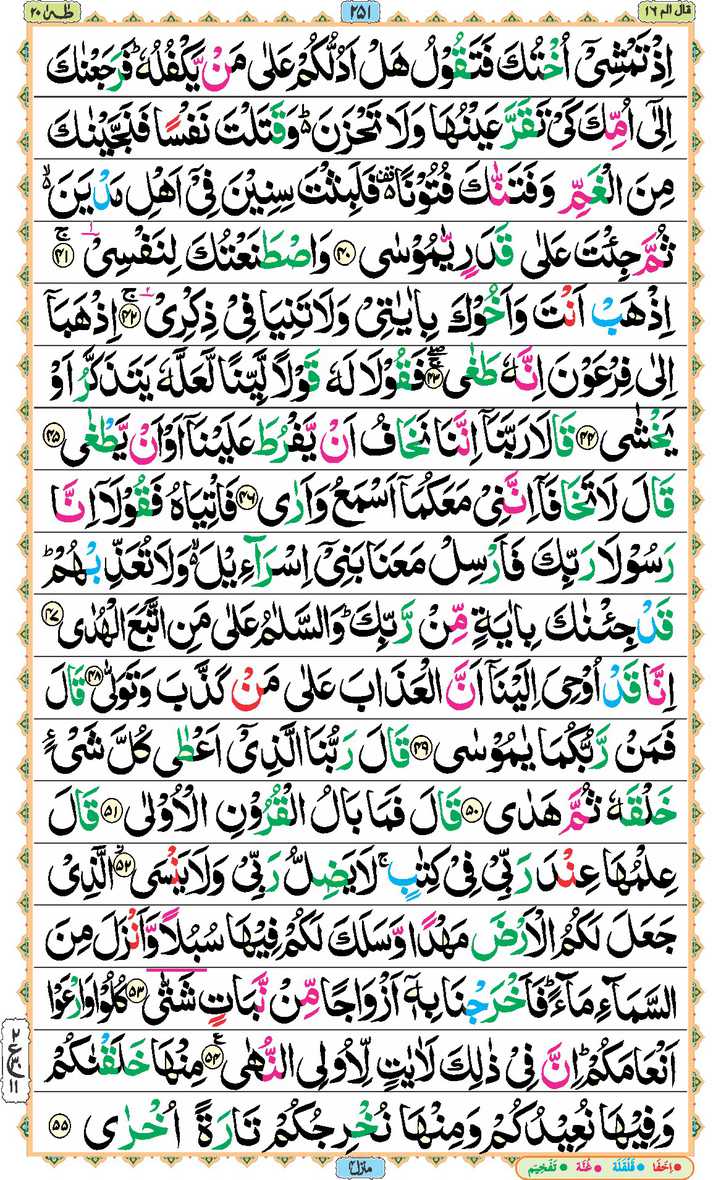 قال الم ١٦ ٢٥١ طٰهٰ ٢٠
اِذْ تَمْشِیْۤ اُخْتُكَ فَتَقُوْلُ هَلْ اَدُلُّكُمْ عَلٰى مَنْ یَّكْفُلُهٗ ؕ فَرَجَعْنٰكَ
اِلٰۤى اُمِّكَ كَیْ تَقَرَّ عَیْنُهَا وَلَا تَحْزَنَ ؕ۬ وَقَتَلْتَ نَفْسًا فَنَجَّیْنٰكَ
مِنَ الْغَمِّ وَفَتَنّٰكَ فُتُوْنًا ۫۬ فَلَبِثْتَ سِنِیْنَ فِیْۤ اَهْلِ مَدْیَنَ ۙ۬
ثُمَّ جِئْتَ عَلٰى قَدَرٍ یّٰمُوْسٰى ﴿۴۰﴾ وَاصْطَنَعْتُكَ لِنَفْسِیْ ۚ ﴿۴۱﴾
اِذْهَبْ اَنْتَ وَاَخُوْكَ بِاٰیٰتِیْ وَلَا تَنِیَا فِیْ ذِكْرِیْ ۚ ﴿۴۲﴾ اِذْهَبَاۤ
اِلٰى فِرْعَوْنَ اِنَّهٗ طَغٰى ۚۖ ﴿۴۳﴾ فَقُوْلَا لَهٗ قَوْلًا لَّیِّنًا لَّعَلَّهٗ یَتَذَكَّرُ اَوْ
یَخْشٰى ﴿۴۴﴾ قَالَا رَبَّنَاۤ اِنَّنَا نَخَافُ اَنْ یَّفْرُطَ عَلَیْنَاۤ اَوْ اَنْ یَّطْغٰى ﴿۴۵﴾
قَالَ لَا تَخَافَاۤ اِنَّنِیْ مَعَكُمَاۤ اَسْمَعُ وَاَرٰى ﴿۴۶﴾ فَاْتِیٰهُ فَقُوْلَاۤ اِنَّا
رَسُوْلَا رَبِّكَ فَاَرْسِلْ مَعَنَا بَنِیْۤ اِسْرَآءِیْلَ ۙ۬ وَلَا تُعَذِّبْهُمْ ؕ
قَدْ جِئْنٰكَ بِاٰیَةٍ مِّنْ رَّبِّكَ ؕ وَالسَّلٰمُ عَلٰى مَنِ اتَّبَعَ الْهُدٰى ﴿۴۷﴾
اِنَّا قَدْ اُوْحِیَ اِلَیْنَاۤ اَنَّ الْعَذَابَ عَلٰى مَنْ كَذَّبَ وَتَوَلّٰى ﴿۴۸﴾ قَالَ
فَمَنْ رَّبُّكُمَا یٰمُوْسٰى ﴿۴۹﴾ قَالَ رَبُّنَا الَّذِیْۤ اَعْطٰى كُلَّ شَیْءٍ
خَلْقَهٗ ثُمَّ هَدٰى ﴿۵۰﴾ قَالَ فَمَا بَالُ الْقُرُوْنِ الْاُوْلٰى ﴿۵۱﴾ قَالَ
عِلْمُهَا عِنْدَ رَبِّیْ فِیْ كِتٰبٍ ۚ لَا یَضِلُّ رَبِّیْ وَلَا یَنْسَى ۫ ﴿۵۲﴾ الَّذِیْ
جَعَلَ لَكُمُ الْاَرْضَ مَهْدًا وَّسَلَكَ لَكُمْ فِیْهَا سُبُلًا وَّاَنْزَلَ مِنَ
السَّمَآءِ مَآءً ؕ فَاَخْرَجْنَا بِهٖۤ اَزْوَاجًا مِّنْ نَّبَاتٍ شَتّٰى ﴿۵۳﴾ كُلُوْا وَارْعَوْا
اَنْعَامَكُمْ ؕ اِنَّ فِیْ ذٰلِكَ لَاٰیٰتٍ لِّاُولِی النُّهٰى ﴿۵۴﴾ مِنْهَا خَلَقْنٰكُمْ
وَفِیْهَا نُعِیْدُكُمْ وَمِنْهَا نُخْرِجُكُمْ تَارَةً اُخْرٰى ﴿۵۵﴾
منزل ۴
اِخفَا قَلْقَلَه غُنَّه تَفْخِیْم